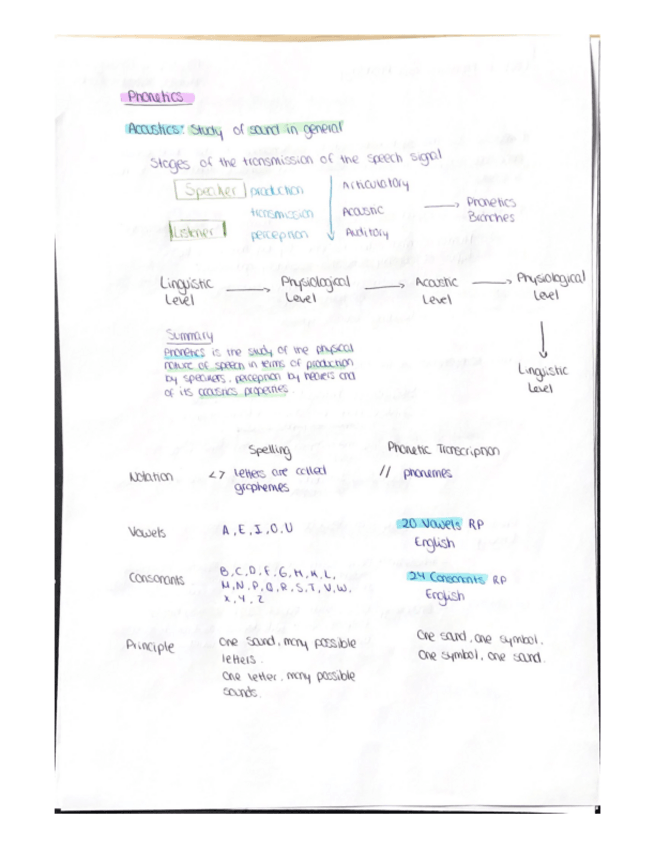 Phonetics
Acoustics: Study of sound in general
Stages of the transmission of the speech signal
Speaker production Articulatory
transmission Acoustic → Phonetics Branches
Listener perception Auditory
Linguistic Level → Physiological Level → Acoustic Level → Physiological Level
↓
Linguistic Level
Summary
Phonetics is the study of the physical
nature of speech in terms of production
by speakers, perception by hearers and
of its acoustics properties.
Spelling Phonetic Transcription
Notation <> letters are called graphemes // phonemes
Vowels A, E, I, O, U 20 Vowels RP English
Consonants
B, C, D, F, G, H, K, L,
M, N, P, Q, R, S, T, V, W,
X, Y, Z
24 Consonants RP
English
Principle
One sound, many possible
letters.
One letter, many possible
sounds.
One sound, one symbol.
One symbol, one sound.